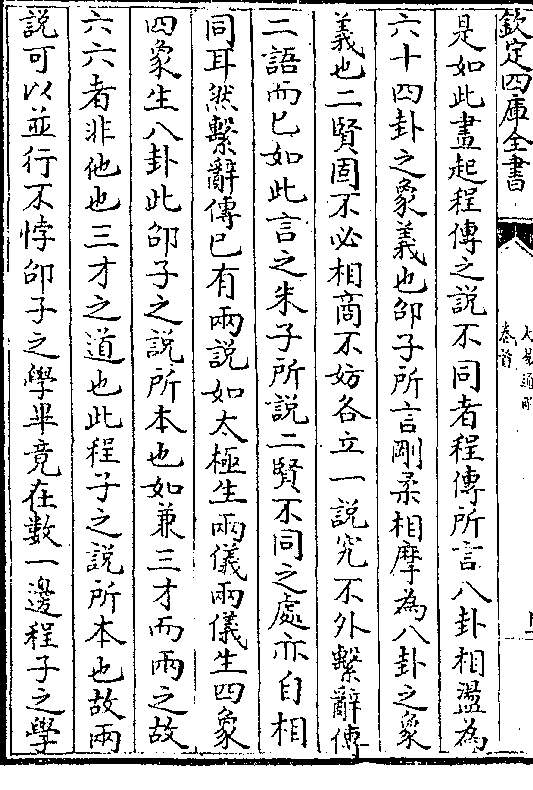 欽定四庫全書
卷首
是如此畫起程傳之說不同者程傳所言八卦相盪為
六十四卦之象義也邵子所言剛柔相摩為八卦之象
義也二賢固不必相商不妨各立一說究不外繫辭傳
二語而已如此言之朱子所說二賢不同之處亦自相
同耳然繫辭傳已有兩說如太極生兩儀兩儀生四象
四象生八卦此邵子之說所本也如兼三才而兩之故
六六者非他也三才之道也此程子之說所本也故兩
說可以並行不悖邵子之學畢竟在數一邊程子之學